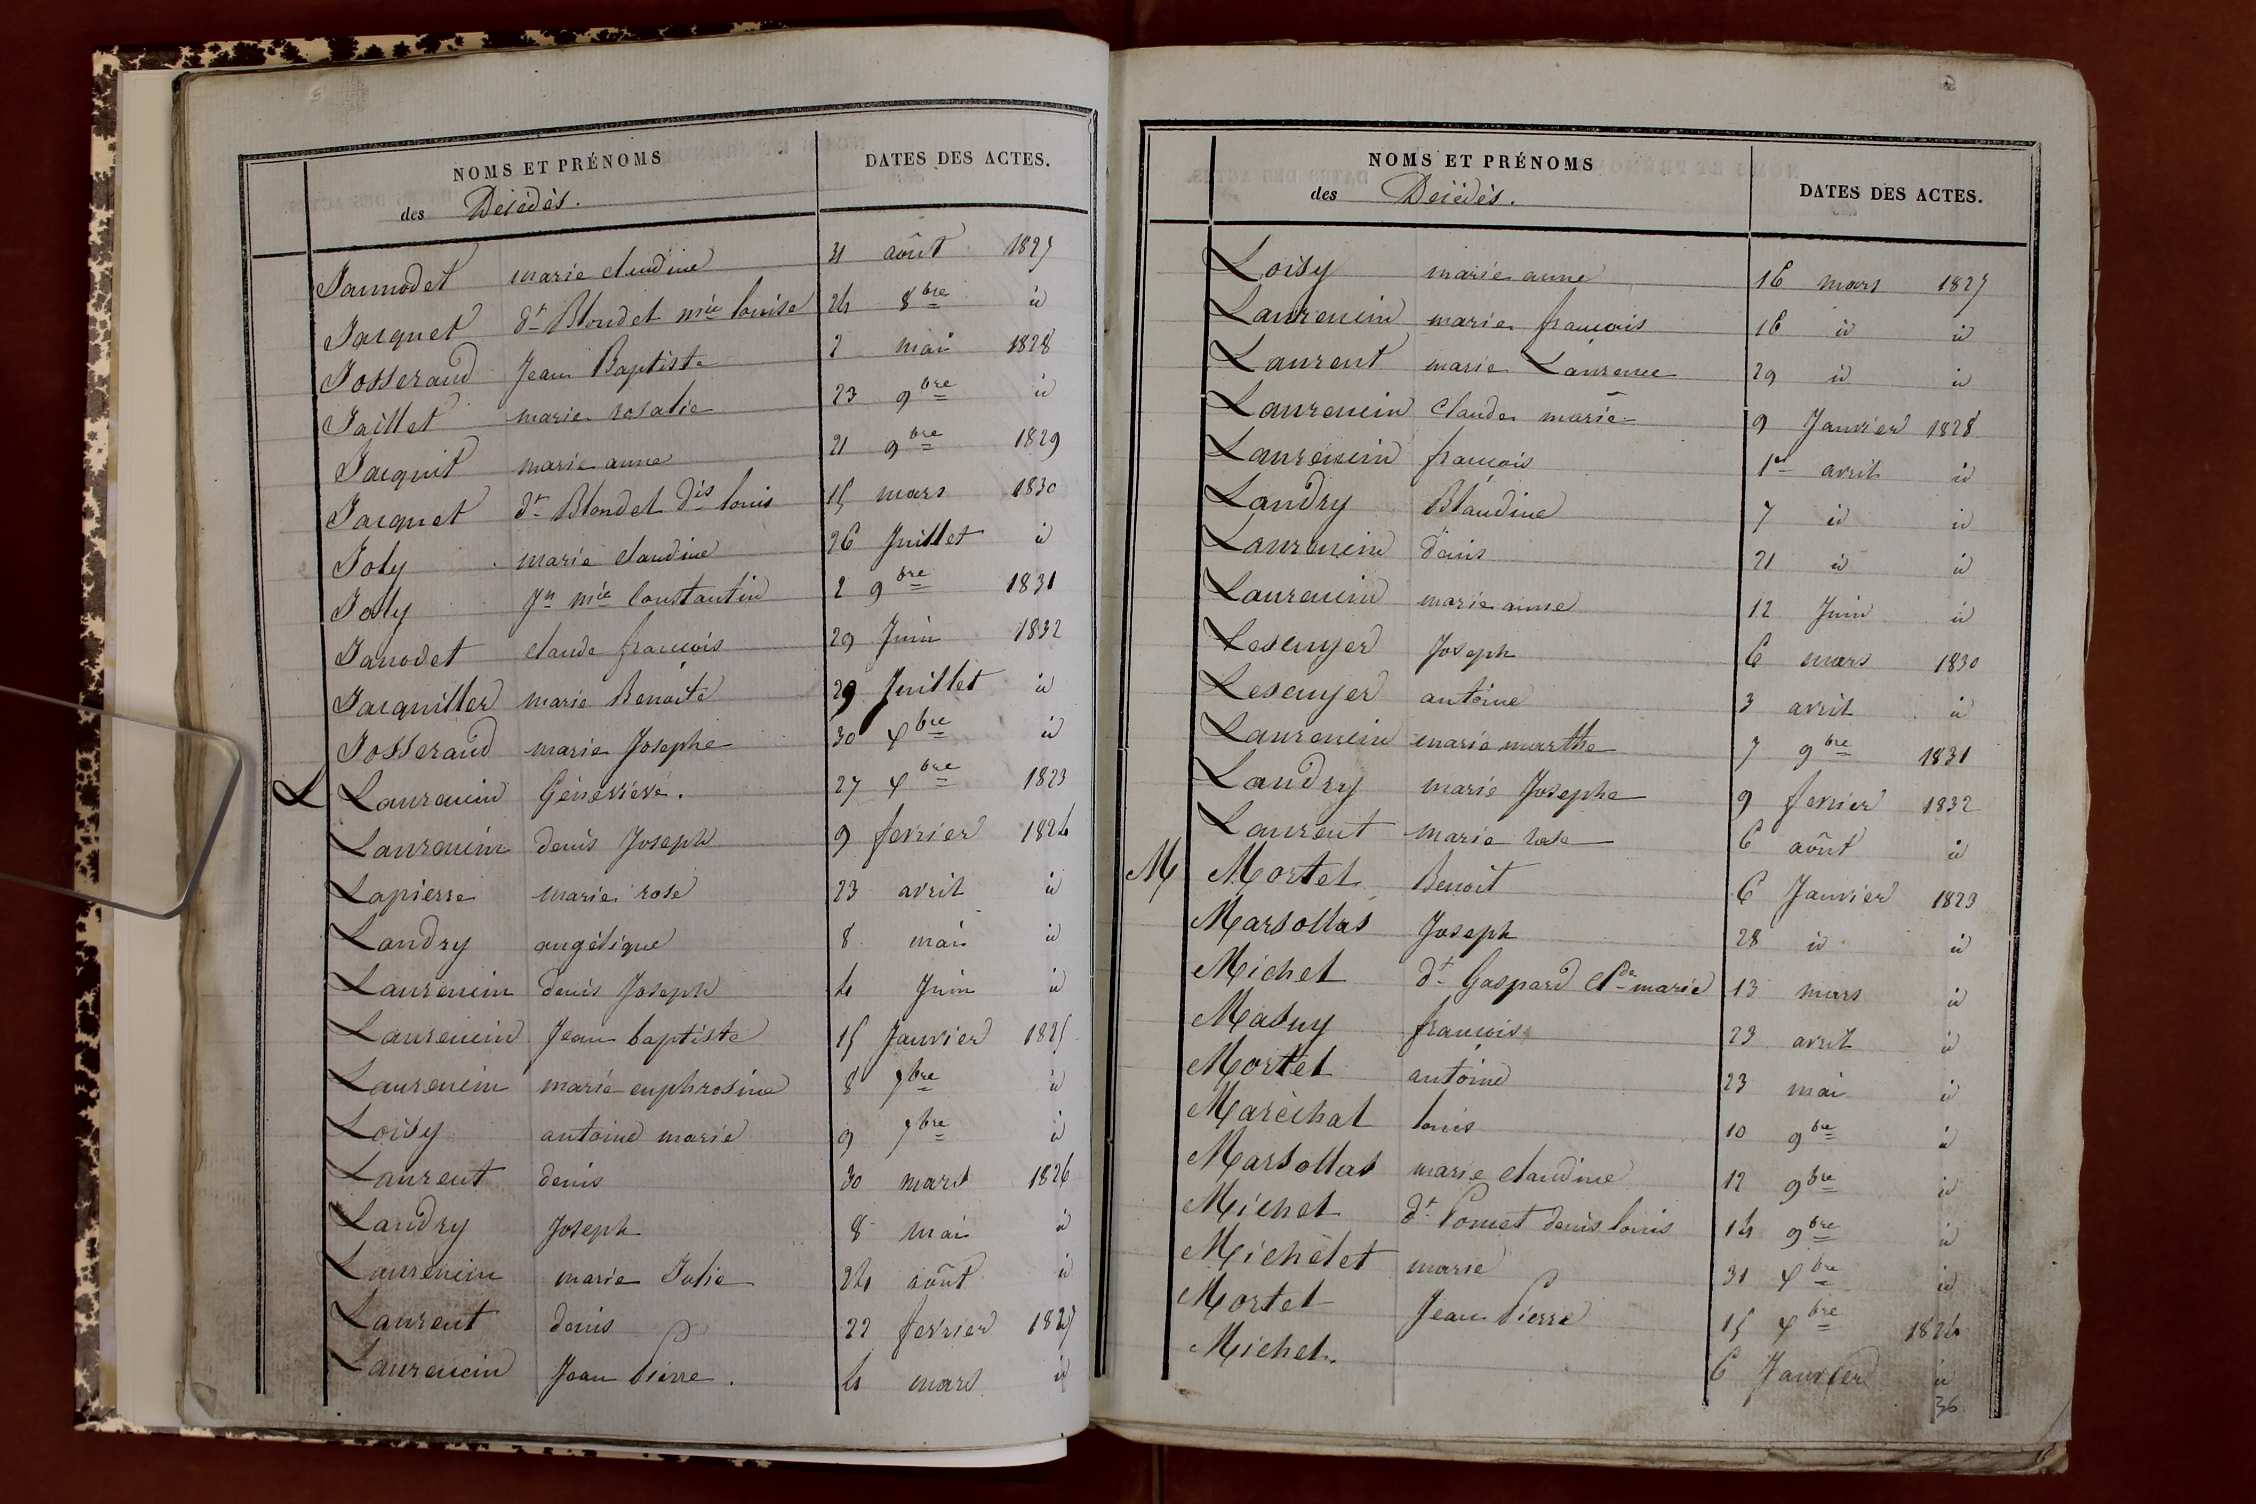 NOMS ET PRÉNOMS
des Décédés.
DATES DES ACTES.
Jannodet marie claudine 31 août 1827
Jacquet dt Blondet mie louise 24 8bre id
Josserand Jean Baptiste 2 mai 1828
Jaillet marie rosalie 23 9bre id
Jacquit marie anne 21 9bre 1829
Jacquet dt Blondet dis louis 15 mars 1830
Joly marie claudine 26 Juillet id
Joly Jn mie Constantin 2 9bre 1831
Janodet claude francois 29 Juin 1832
Jacquiller marie Benoite 29 Juillet id
Josserand marie Josephe 30 Xbre id
L Laurencin Géneviéve. 27 Xbre 1823
Laurencin denis Joseph 9 fevrier 1824
Lapierre marie rose 23 avril id
Landry angélique 8 mai id
Laurencin denis Joseph 4 Juin id
Laurencin Jean baptiste 15 Janvier 1825
Laurencin marie euphrosine 8 7bre id
Loisy antoine marie 9 7bre id
Laurent denis 30 mars 1826
Landry Joseph 8 mai id
Laurencin marie Julie 24 août id
Laurent denis 22 fevrier 1827
Laurencin Jean Pierre. 4 mars id
NOMS ET PRÉNOMS
des Décédés.
DATES DES ACTES.
Loisy marie anne 16 mars 1827
Laurencin marie francois 16 id id
Laurent marie Laurence 29 id id
Laurencin claude marie 9 Janvier 1828
Laurencin francois 1er avril id
Landry Blaudine 7 id id
Laurencin denis 21 id id
Laurencin marie anne 12 Juin id
Lescuyer Joseph 6 mars 1830
Lescuyer antoine 3 avril id
Laurencin marie marthe 7 9bre 1831
Landry marie Josephe 9 fevrier 1832
Laurent marie rose 6 août id
M Mortel Benoit 6 Janvier 1823
Marsollas Joseph 28 id id
Michel dt Gaspard Cde marie 13 mars id
Masuy francois 23 avril id
Mortel antoine 23 mai id
Maréchal louis 10 9bre id
Marsollas marie claudine 12 9bre id
Michel dt Poncet denis louis 14 9bre id
Michèlet marie 31 Xbre id
Mortel Jean Pierre 15 Xbre 1824
Michel. 6 Janvier id
36